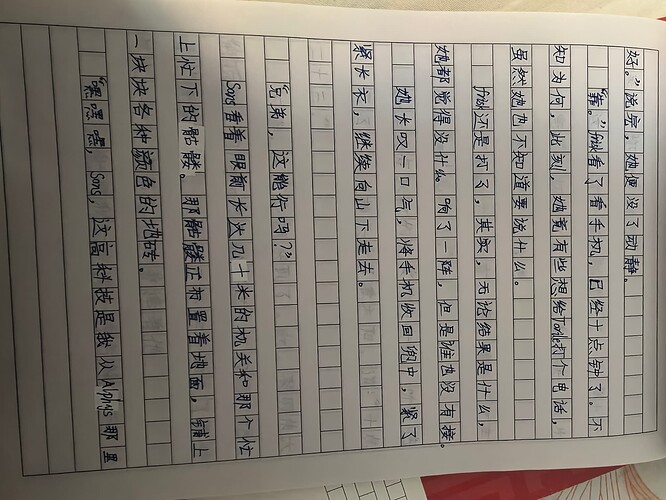 好。”说完，她便没了动静。
“靠。”frisk看了看手机，已经十点钟了。不
知为何，此刻，她竟有些想给Toriel打个电话，
虽然她也不知道要说什么。
frisk还是打了，其实，无论结果是什么，
她都觉得没什么。响了一阵，但是谁也没有接。
她长叹一口气，将手机收回包中，紧了
紧长衣，继续向山下走去。
二十三
“兄弟，这能行吗？”
Sans看着眼前长达几十米的机关和那个位
上忙下的骷髅。那骷髅正布置着地面，铺上
一块块各种颜色的地砖。
“嘿嘿嘿，Sans，这高科技是我从Alphys那里